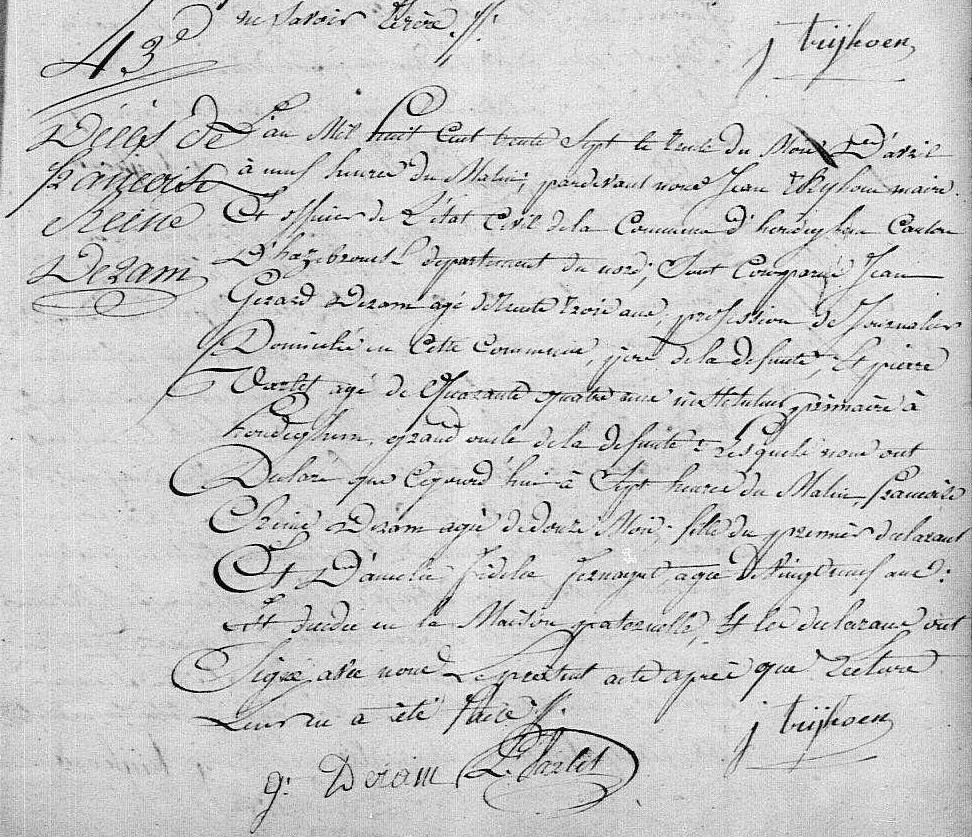 ne savoir Ecrire ./.
j trijhoen
43e
Décès de
françoise
Reine
Deram
L'an Mil huit Cent trente Sept le trente du Mois D'avril
à neuf heures du Matin, pardevant nous Jean maire
Et officier de L'état Civil de la Commune d'hondeghem Canton
D'hazebrouck département du nord; Sont Comparus Jean
Gerard Deram agé de trente trois ans, profession de Journalier
Domicilié en Cette Commune, père de la defunte, Et pierre
Varlet agé de Quarante quatre ans instituteur primaire à
hondeghem, grand oncle de la defunte: Lesquels nous ont
Déclaré que Cejourd'hui à Sept heures du Matin, francoise
Reine Deram agée de douze Mois; fille du premier declarant
Et D'amelie fidele agée de vingt neuf ans:
Est decedée en la Maison paternelle, Et les declarans ont
Signé avec nous Le présent acte après que Lecture
Leur en a été faite ./.
j trijhoen
g: Deram
P. Varlet